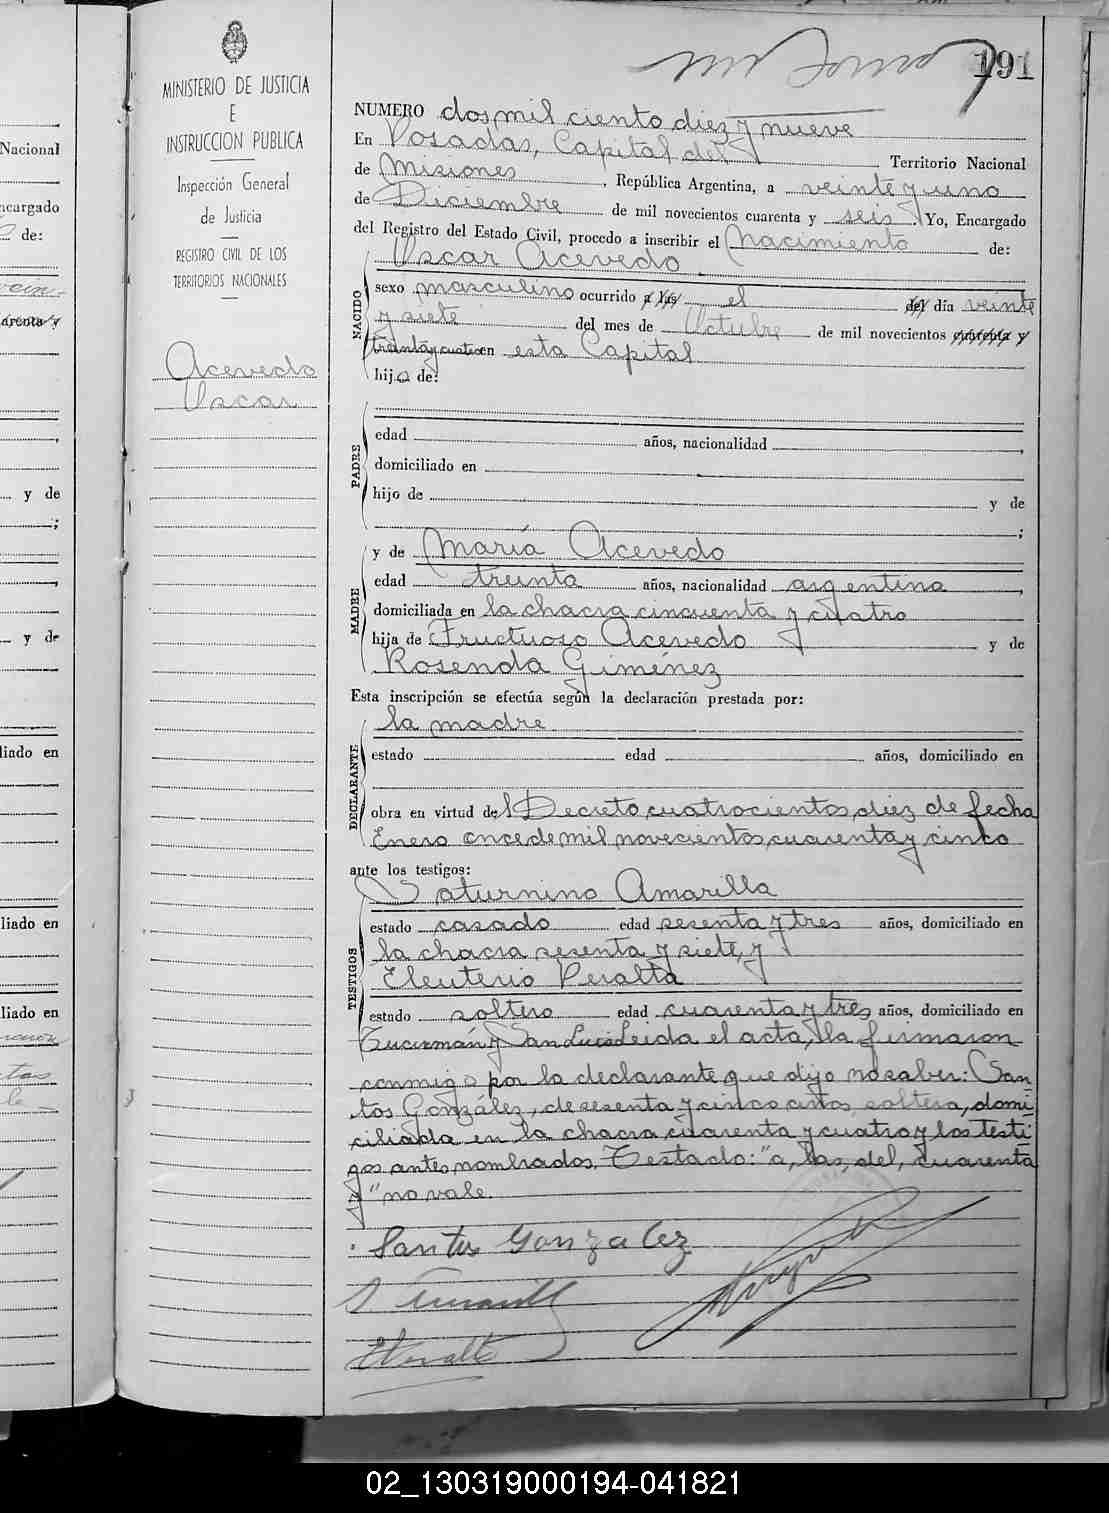 191
MINISTERIO DE JUSTICIA
E
INSTRUCCION PUBLICA
Inspección General
de Justicia
REGISTRO CIVIL DE LOS
TERRITORIOS NACIONALES
Acevedo
Oscar
NUMERO dos mil ciento diez y nueve
En Posadas, Capital del Territorio Nacional
de Misiones, República Argentina, a veinte y uno
de Diciembre de mil novecientos cuarenta y seis. Yo, Encargado
del Registro del Estado Civil, procedo a inscribir el Nacimiento de:
Oscar Acevedo.
NACIDO
sexo masculino ocurrido a las el del día veinte
y siete del mes de Octubre de mil novecientos cuarenta y
treinta y cuatro en esta Capital
hijo de:
PADRE
edad años, nacionalidad ,
domiciliado en
hijo de y de
;
MADRE
y de María Acevedo
edad treinta años, nacionalidad argentina,
domiciliada en la chacra cincuenta y cuatro
hija de Fructuoso Acevedo y de
Rosenda Giménez
Esta inscripción se efectúa según la declaración prestada por:
DECLARANTE
la madre
estado edad años, domiciliado en
obra en virtud del Decreto cuatrocientos diez de fecha
Enero once de mil novecientos cuarenta y cinco
ante los testigos:
TESTIGOS
Saturnino Amarilla
estado casado edad sesenta y tres años, domiciliado en
la chacra sesenta y siete, y
Eleuterio Peralta
estado soltero edad cuarenta y tres años, domiciliado en
Tucumán y San Luis Leida el acta, la firmaron
conmigo por la declarante que dijo no saber: San
tos González, de sesenta y cinco años, soltera, domi
ciliada en la chacra cuarenta y cuatro y los testi
gos antes nombrados. Testado: "a, las, del, cuarenta
y" no vale.
Santos Gonzalez
Nacional
ncargado
de:
cuarenta y
y de
;
y de
liado en
liado en
liado en
02_130319000194-041821